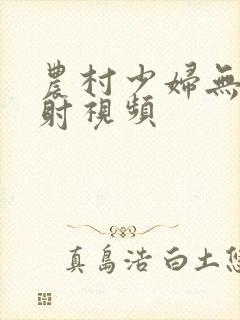 農村少婦無
射視頻
真島浩 白土悠